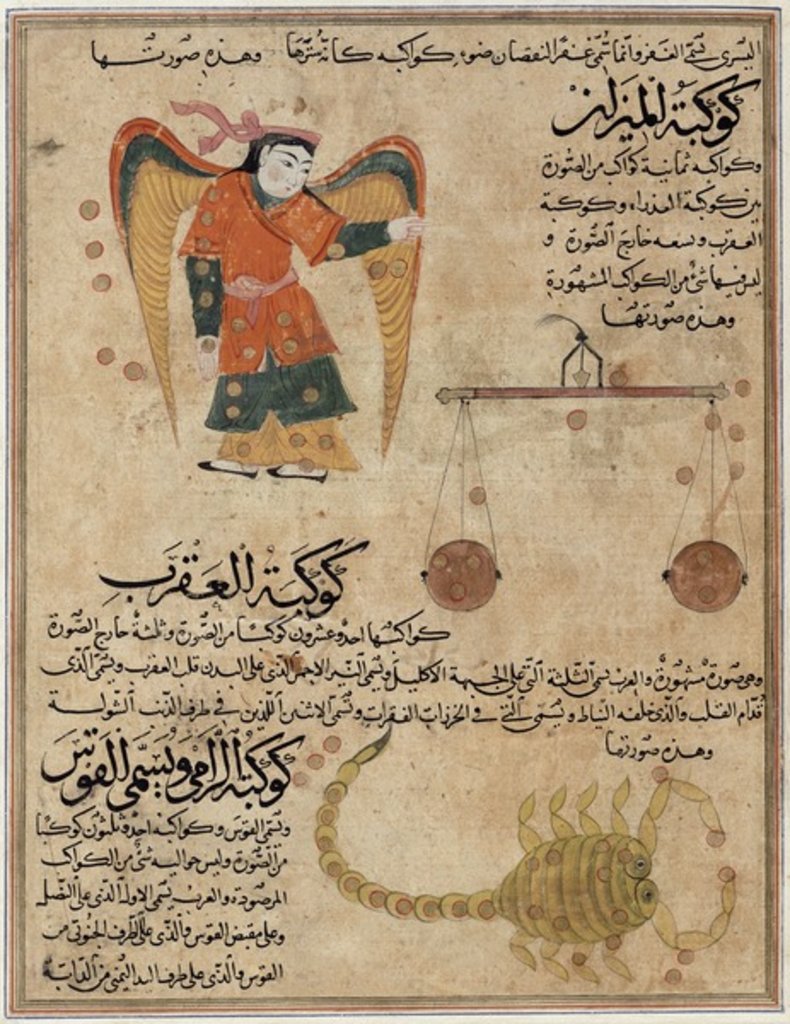 اليسرى تسمى الغفر وانما سمى غفرا لنقصان ضوء كواكبه كانه سترها وهذه صورتها
كوكبة الميزان
وكواكبه ثمانية كواكب من الصورة
بين كوكبة العذراء وكوكبة
العقرب وتسعه خارج الصورة و
ليس فيها شئ من الكواكب المشهورة
وهذه صورتها
كوكبة العقرب
كواكبها احد وعشرون كوكبا من الصورة وثلثة خارج الصورة
وهى صورة مشهورة والعرب تسمى الثلثة التى على الجبهة الاكليل وتسمى النير الاحمر الذى على البدن قلب العقرب وتسمى الذى
قدام القلب والذى خلفه النياط وتسمى التى فى الخرزات الفقرات وتسمى الاثنين اللذين فى طرف الذنب الشولة
وهذه صورتها
كوكبة الرامى ويسمى القوس
وتسمى القوس وكواكبه احد وثلثون كوكبا
من الصورة وليس حواليه شئ من الكواكب
المرصودة والعرب تسمى الاول الذى على النصل
وعلى مقبض القوس والذى على الطرف الجنوبى من
القوس والذى على طرف اليد اليمنى من الدابة